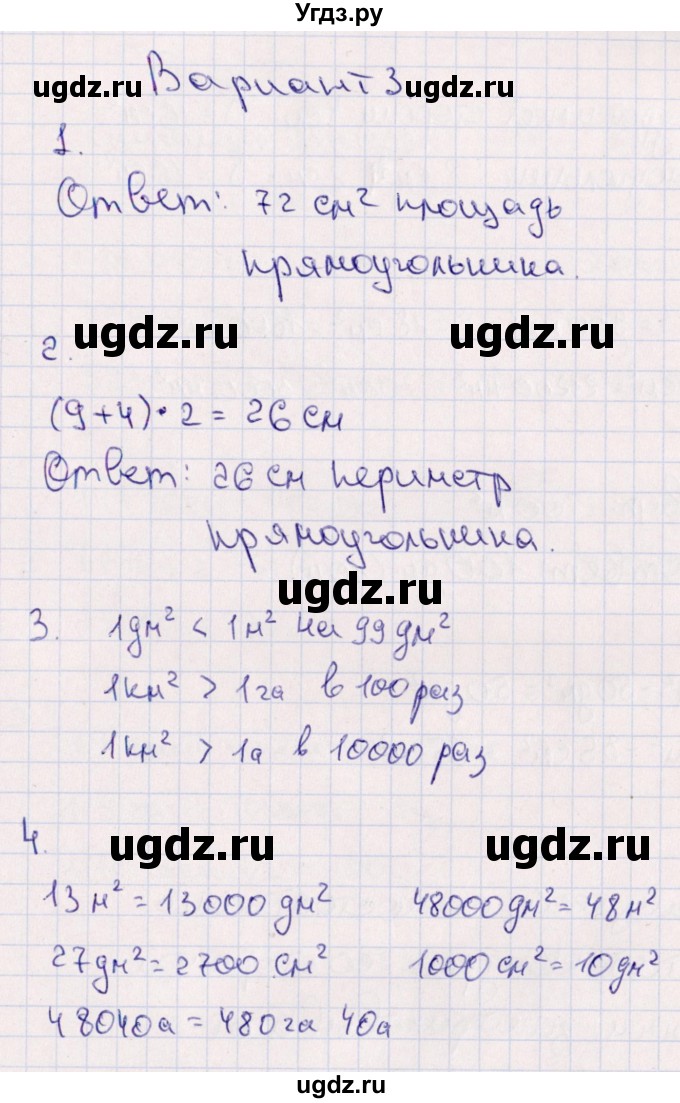 Угдз.ру
ugdz.ru Вариант 3 ugdz.ru
1.
Ответ: 72 см² площадь
прямоугольника.
ugdz.ru ugdz.ru
2.
(9+4)·2 = 26 см
Ответ: 26 см периметр
прямоугольника.
ugdz.ru
3. 1дм² < 1м² на 99дм²
1км² > 1га в 100 раз
1км² > 1а в 10000 раз
4.
ugdz.ru ugdz.ru
13м² = 13000 дм² 48000дм² = 48м²
27дм² = 2700 см² 1000см² = 10дм²
48040а = 480га 40а
ugdz.ru